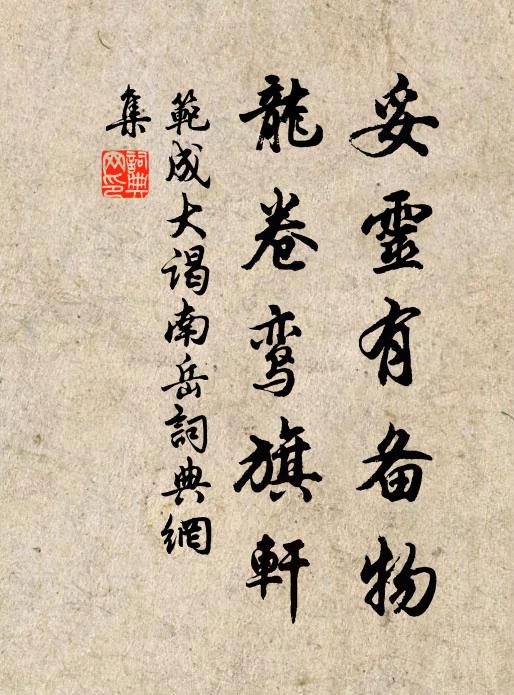 妥靈有备物
龍卷鸾旗軒
範成大谒南岳詞典網
集
詞典
网印